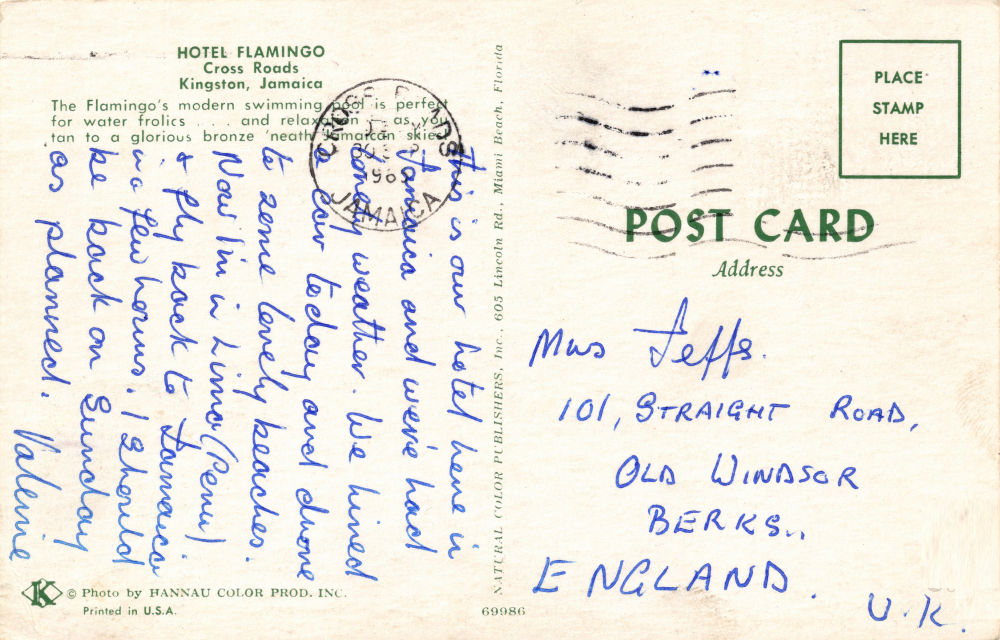 HOTEL FLAMINGO
Cross Roads
Kingston, Jamaica
The Flamingo's modern swimming pool is perfect
for water frolics . . . and relaxation . . as you
tan to a glorious bronze 'neath Jamaican skies.
CROSS ROADS
JAMAICA
This is our hotel here in
Jamaica and we've had
lovely weather. We hired
a car today and drove
to some lovely beaches.
Now I'm in Lima (Peru)
& fly back to Jamaica
in a few hours. I should
be back on Sunday
as planned. Valerie
NATURAL COLOR PUBLISHERS, Inc., 605 Lincoln Rd., Miami Beach, Florida
PLACE
STAMP
HERE
POST CARD
Address
Mrs Jeffs.
101, STRAIGHT ROAD,
OLD WINDSOR
BERKS.,
ENGLAND.
U.K.
K © Photo by HANNAU COLOR PROD. INC.
Printed in U.S.A.
69986